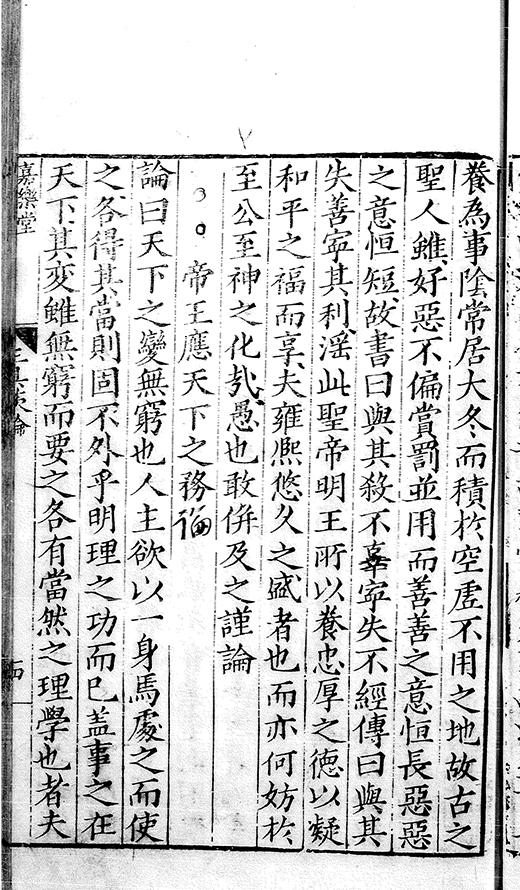 養為事陰常居大冬而積於空虛不用之地故古之
聖人雖好惡不偏賞罰並用而善善之意恒長惡惡
之意恒短故書曰與其殺不辜寧失不經傳曰與其
失善寧其利淫此聖帝明王所以養忠厚之德以凝
和平之福而享夫雍熈悠久之盛者也而亦何妨於
至公至神之化㢤愚也敢併及之謹論
帝王應天下之務論
論曰天下之變無窮也人主欲以一身焉處之而使
之各得其當則固不外乎明理之功而已盖事之在
天下其変雖無窮而要之各有當然之理學也者夫
嘉樂堂